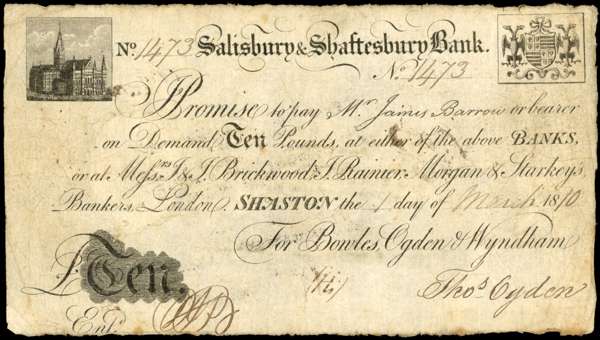 No. 1473 Salisbury & Shaftesbury Bank.
No. 1473
Promise to pay Mr. James Barrow or bearer
on Demand Ten Pounds, at either of the above BANKS,
or at Messrs. J. & J. Brickwood, J. Rainier, Morgan & Starkey's
Bankers, London. SHASTON the 1 day of March 1810
For Bowles, Ogden & Wyndham
£ Ten,
Thos Ogden
Entd.